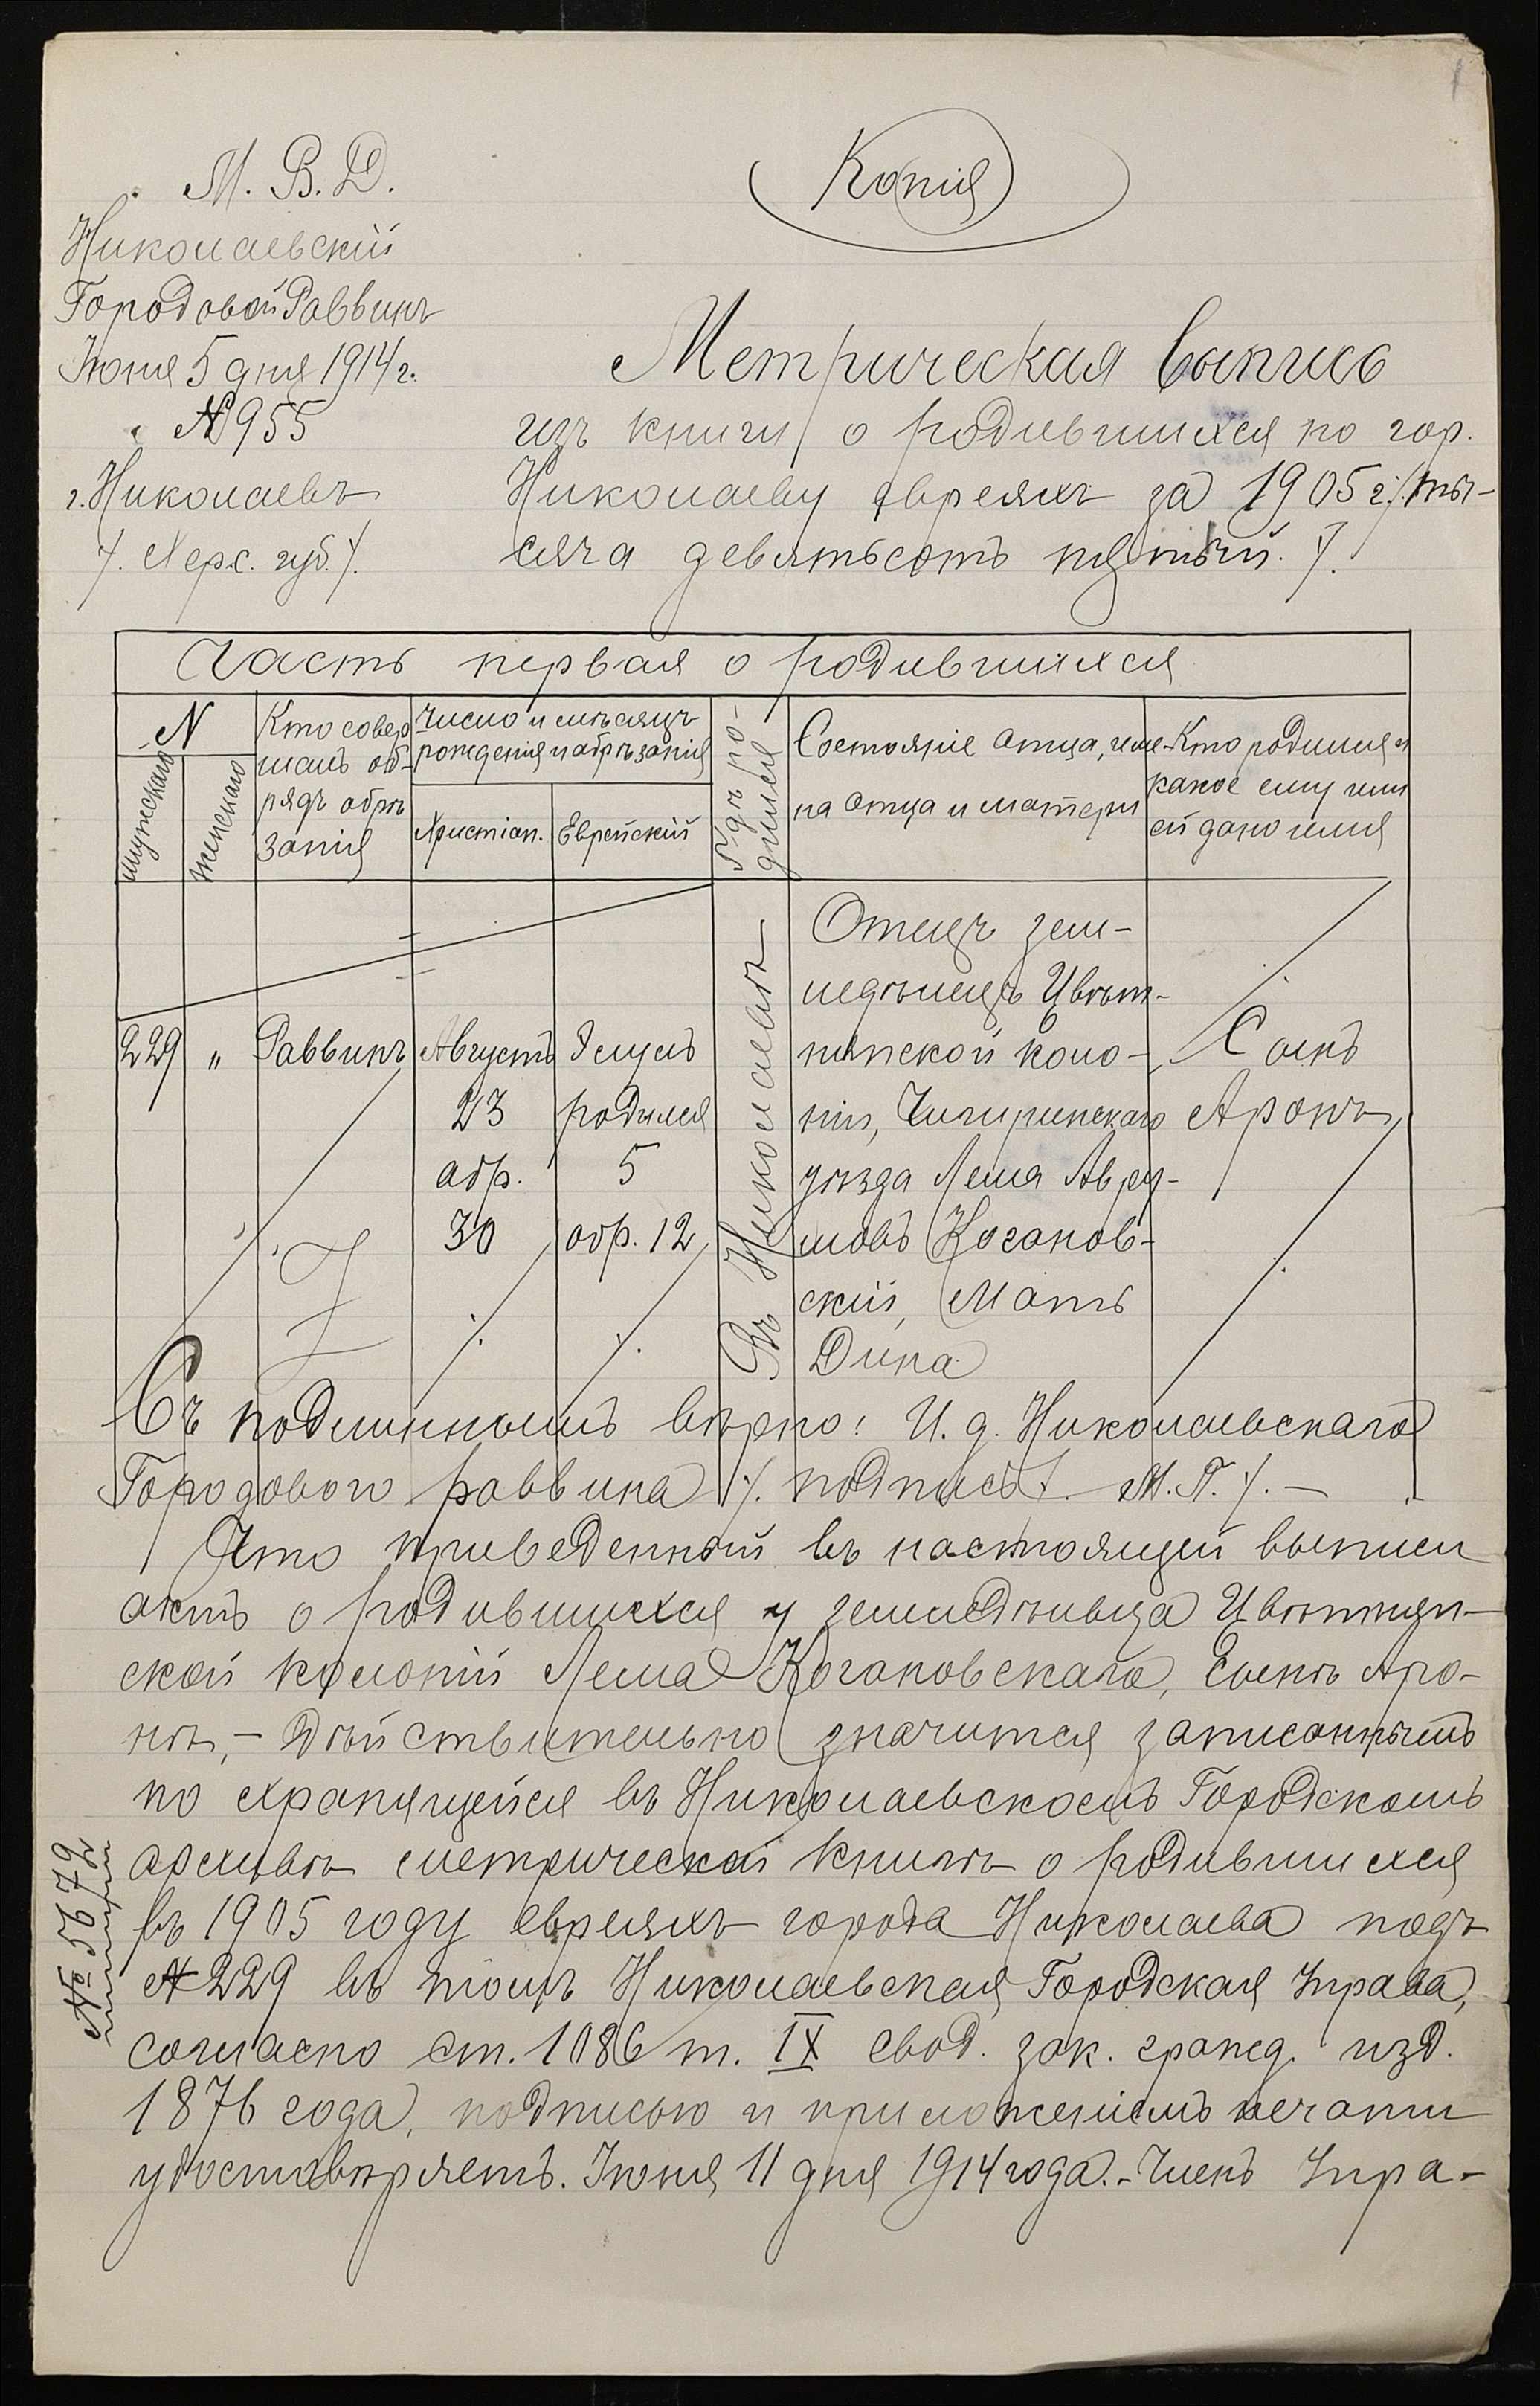 М. В. Д.
Николаевскій
Городовой Раввинъ
Іюня 5 дня 1914 г.
№ 955
г. Николаевъ
/. Херс. губ. /.
Копія
Метрическая выпись
изъ книги о родившихся по гор.
Николаеву евреяхъ за 1905 г. /. ты-
сяча девятьсотъ пятый. /.
Часть первая о родившихся
N
мужскаго
женскаго
Кто совер
шалъ об-
рядъ обрѣ
занія
Число и мѣсяцъ
рожденія и обрѣзанія
Христіан.
Еврейскій
Гдѣ ро-
дился
Состояніе отца, име-
на отца и матери
Кто родился и
какое ему или
ей дано имя
229
"
Раввинъ
Августъ
23
обр.
30
Элулъ
родился
5
обр. 12
Въ Николаевѣ
Отецъ зем-
ледѣлецъ Цвѣт-
нинской коло-
ніи, Чигиринскаго
уѣзда Лема Авру-
мовъ Когановъ-
скій, Мать
Дина
Сынъ
Аронъ
Съ подлиннымъ вѣрно: И. д. Николаевскаго
Городового раввина /. подпись /. М. П. /. —
Что приведенный въ настоящей выписи
актъ о родившихся у земледѣльца Цвѣтнин-
ской колоніи Лема Когановскаго, сынѣ Аро-
нѣ, — дѣйствительно значится записаннымъ
по хранящейся въ Николаевскомъ Городскомъ
архивѣ метрической книгѣ о родившихся
въ 1905 году евреяхъ города Николаева подъ
№ 229 въ томъ Николаевская Городская Управа,
согласно ст. 1086 т. IX свод. зак. гражд. изд.
1876 года, подписью и приложеніемъ печати
удостовѣряетъ. Іюня 11 дня 1914 года. - Членъ Упра-
№ 5672